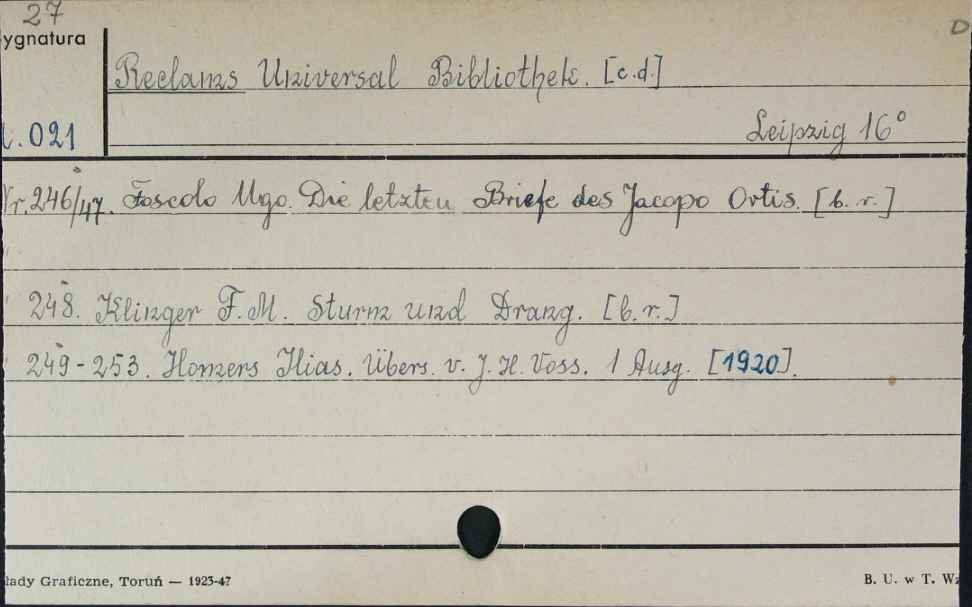 27
D
ygnatura
Reclams Universal Bibliothek. [c.d.]
Leipzig 16°
.021
Nr. 246/47. Foscolo Ugo. Die letzten Briefe des Jacopo Ortis. [b. r.]
" 248. Klinger F. M. Sturm und Drang. [b. r.]
" 249-253. Homers Ilias. Übers. v. J. H. Voss. 1 Ausg. [1920].
łady Graficzne, Toruń — 1923-47
B. U. w T. Wz